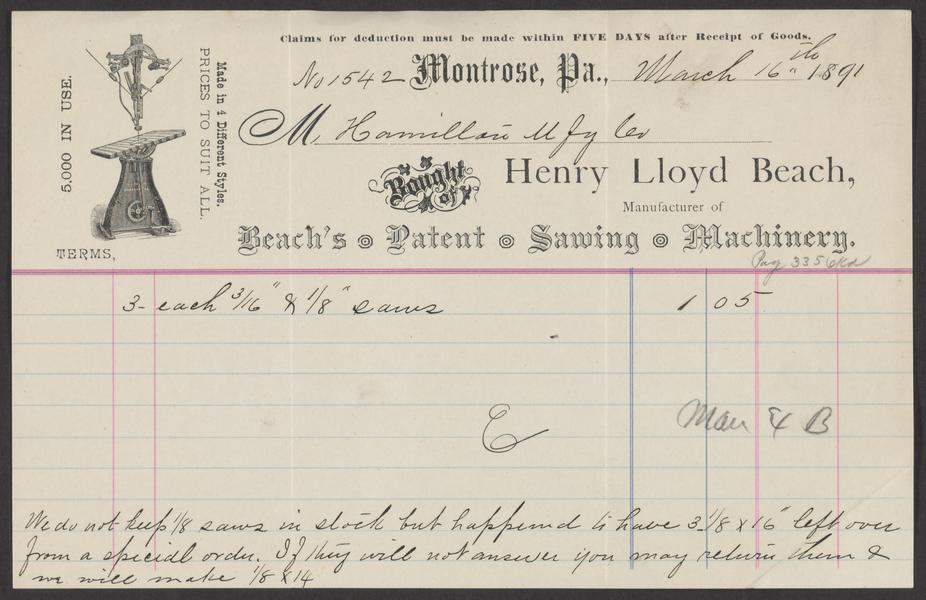 Claims for deduction must be made within FIVE DAYS after Receipt of Goods.
No 1542 Montrose, Pa., March 16th 1891
M. Hamilton Mfg Co
Bought of Henry Lloyd Beach,
Manufacturer of
Beach's Patent Sawing Machinery.
5,000 IN USE.
Made in 4 Different Styles.
PRICES TO SUIT ALL.
TERMS,
Pag 335
3- each 3/16" & 1/8" saws 1 05
Man & B
We do not keep 1/8 saws in stock but happened to have 3-1/8 x 16" left over
from a special order. If they will not answer you may return them &
we will make 1/8 x 14